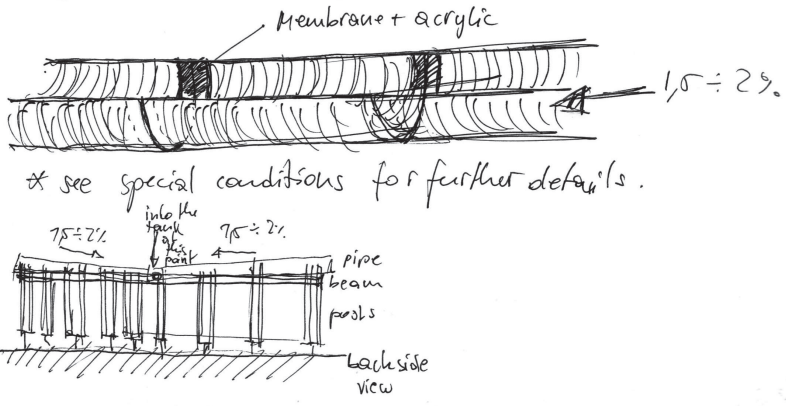 Membrane + acrylic
1,5 ÷ 2%
* see special conditions for further details.
into the
tank
at
this
point
1,5 ÷ 2%
1,5 ÷ 2%
pipe
beam
posts
backside
view